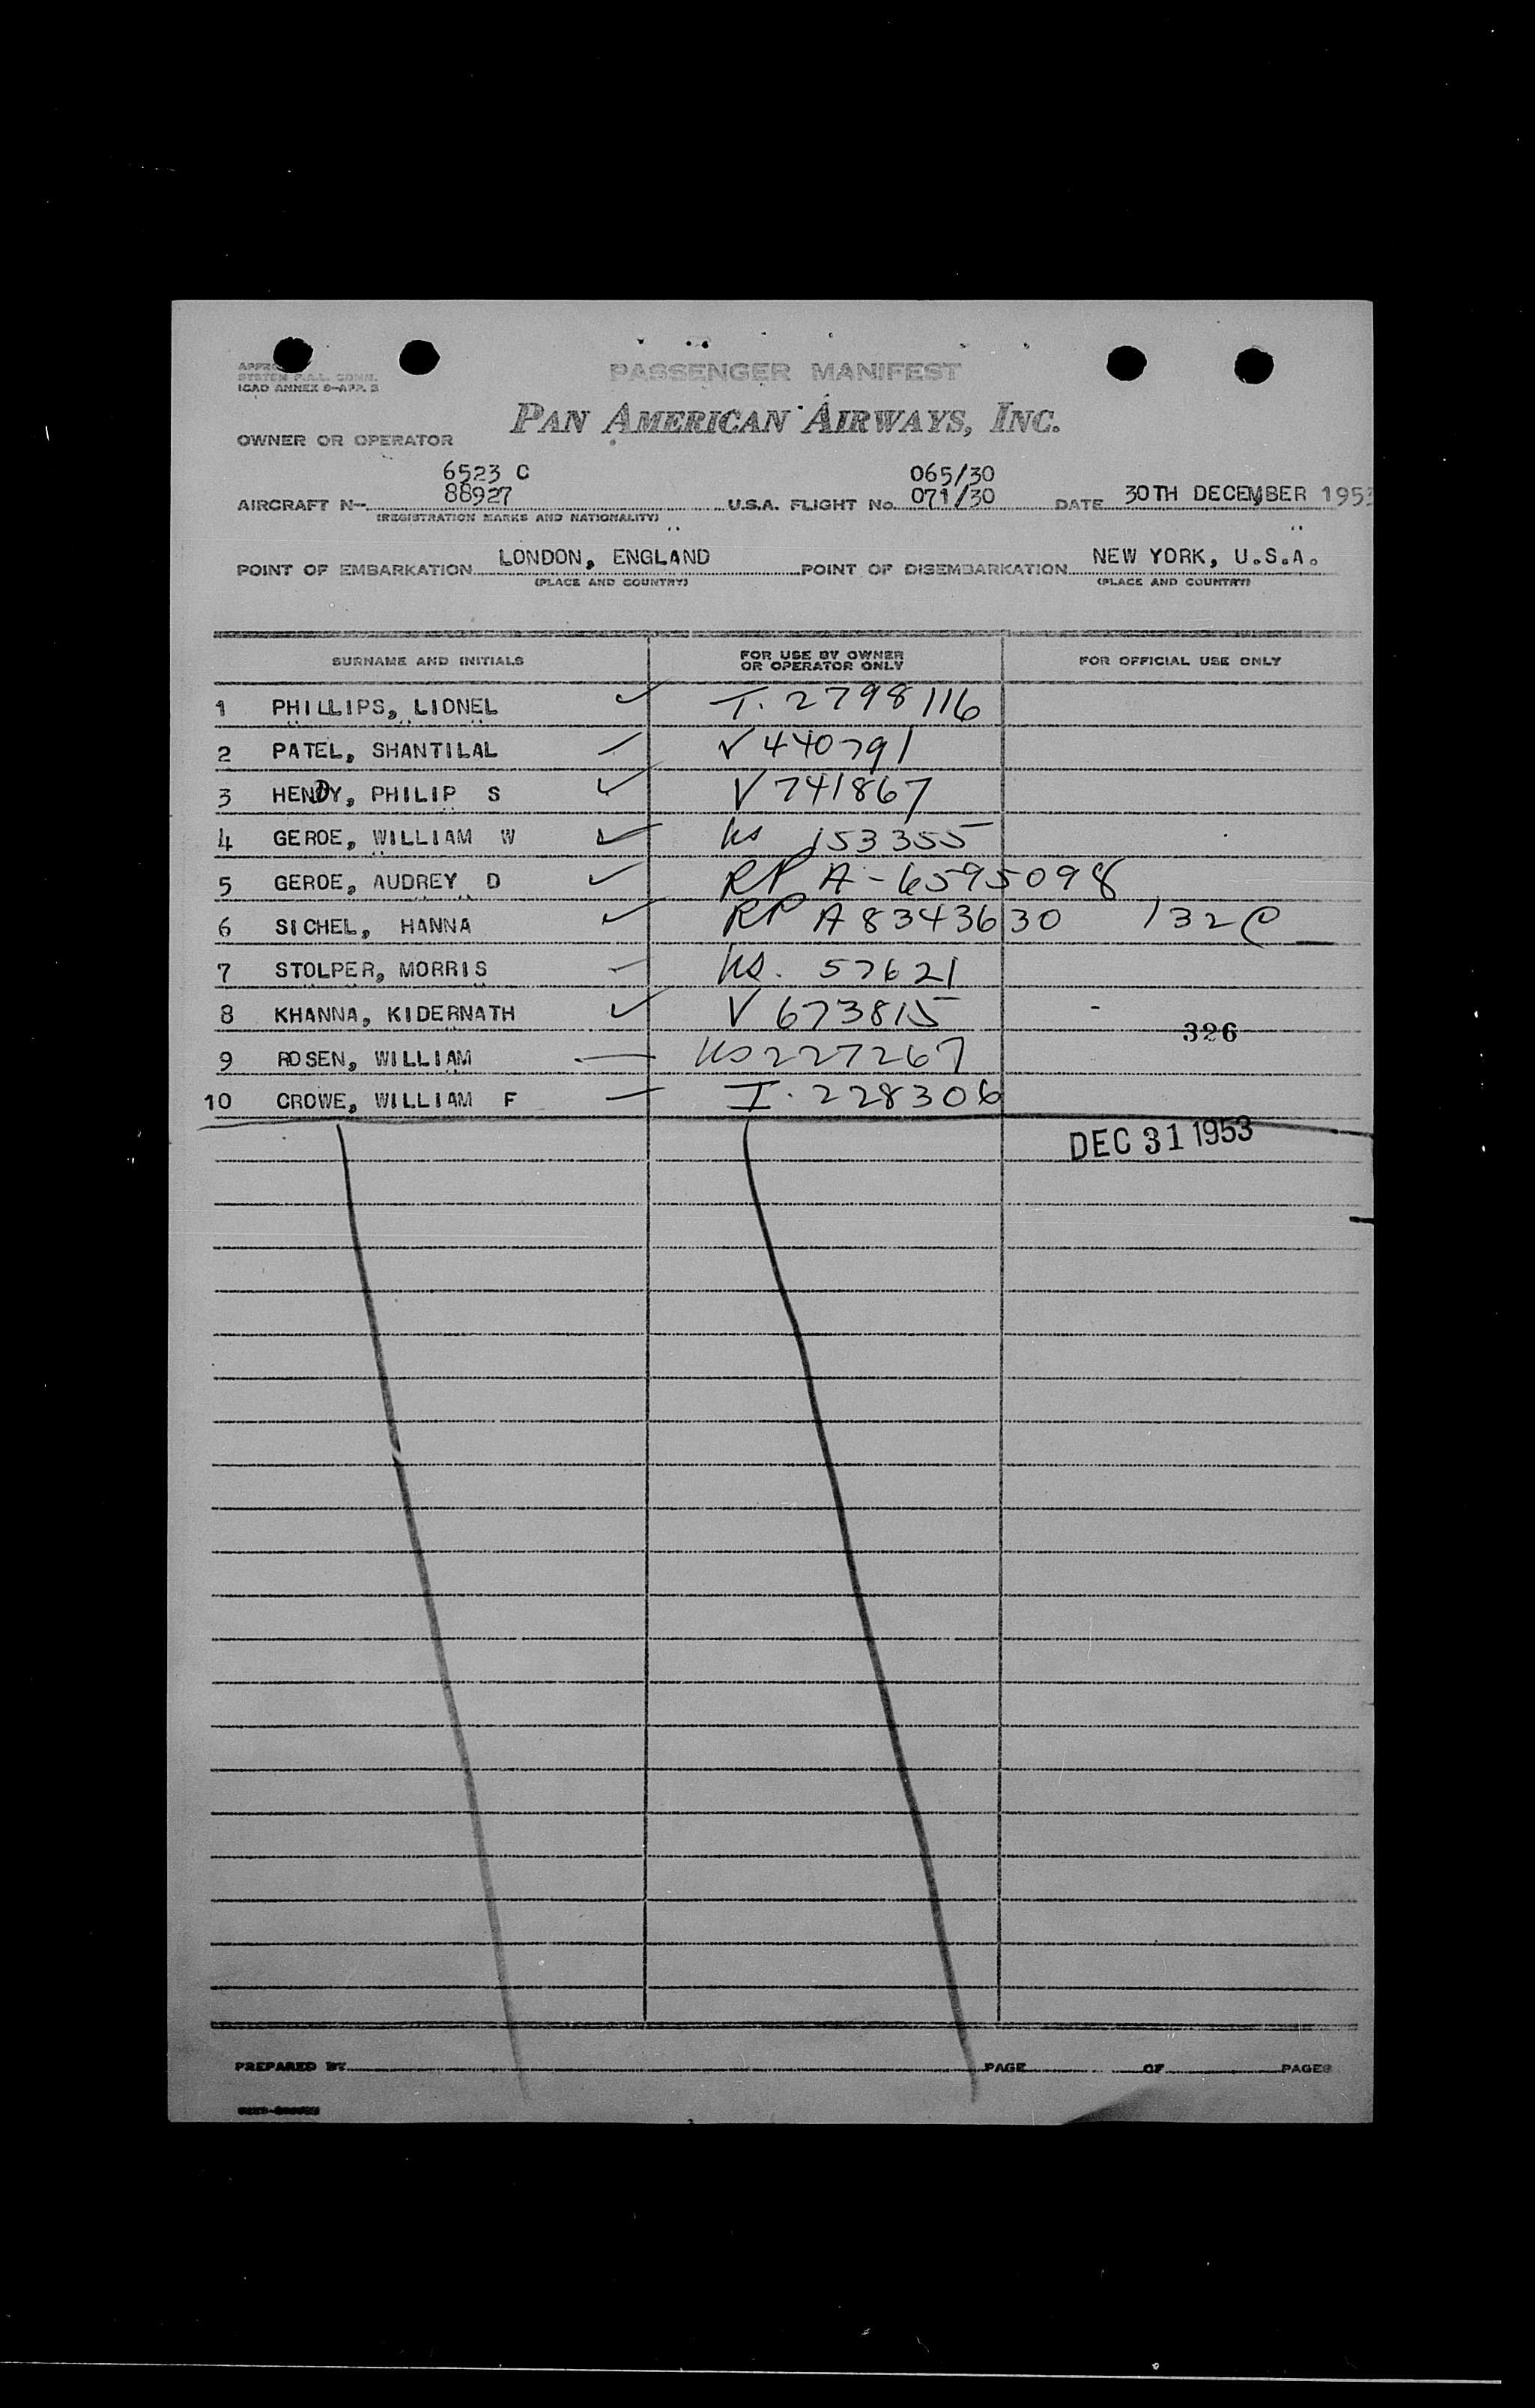 PASSENGER MANIFEST
ICAO ANNEX 9-APP. 3
PAN AMERICAN AIRWAYS, INC.
OWNER OR OPERATOR
6523 C 065/30
AIRCRAFT N- 88927 U.S.A. FLIGHT No. 071/30 DATE 30TH DECEMBER 1953
(REGISTRATION MARKS AND NATIONALITY)
POINT OF EMBARKATION LONDON, ENGLAND POINT OF DISEMBARKATION NEW YORK, U.S.A.
(PLACE AND COUNTRY) (PLACE AND COUNTRY)
SURNAME AND INITIALS FOR USE BY OWNER OR OPERATOR ONLY FOR OFFICIAL USE ONLY
1 PHILLIPS, LIONEL ✓ T. 2798116
2 PATEL, SHANTILAL ✓ V 440791
3 HENDY, PHILIP S ✓ V 741867
4 GEROE, WILLIAM W ✓ US 153355
5 GEROE, AUDREY D ✓ RP A-6595098
6 SICHEL, HANNA ✓ RP A 8343630 132C
7 STOLPER, MORRIS ✓ US. 57621
8 KHANNA, KIDERNATH ✓ V 673815
326
9 ROSEN, WILLIAM — US 227267
10 CROWE, WILLIAM F — I. 228306
DEC 31 1953
PREPARED BY PAGE OF PAGES